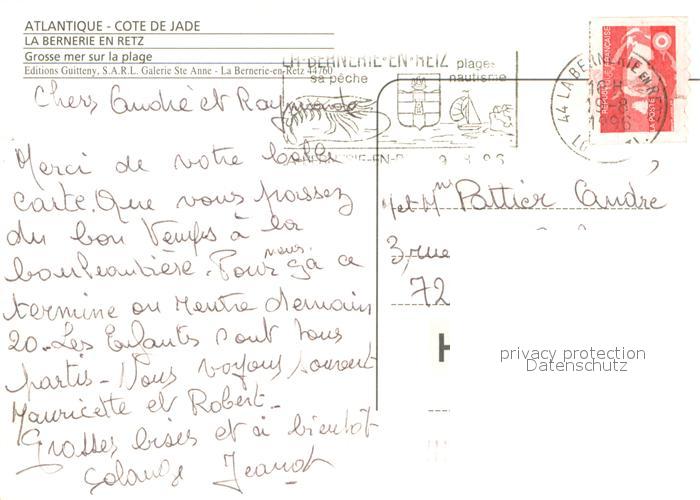 ATLANTIQUE - COTE DE JADE
LA BERNERIE EN RETZ
Grosse mer sur la plage
Editions Guitteny, S.A.R.L. Galerie Ste Anne - La Bernerie-en-Retz 44760
LA BERNERIE-EN-RETZ
sa pêche
plages
nautisme
44 LA BERNERIE EN R
16 H
19-8
1996
REPUBLIQUE FRANÇAISE
LA POSTE
Chers André et Raymonde
Merci de votre belle
carte. Que vous passez
du bon temps à la
Pour nous ça ce
termine on rentre demain
20. Les Enfants sont tous
partis - Nous voyons souvent
Mauricette et Robert -
Grosses bises et à bientôt
Solange Jeanot
M et Mme Pottier André
3, rue
72
H
privacy protection
Datenschutz